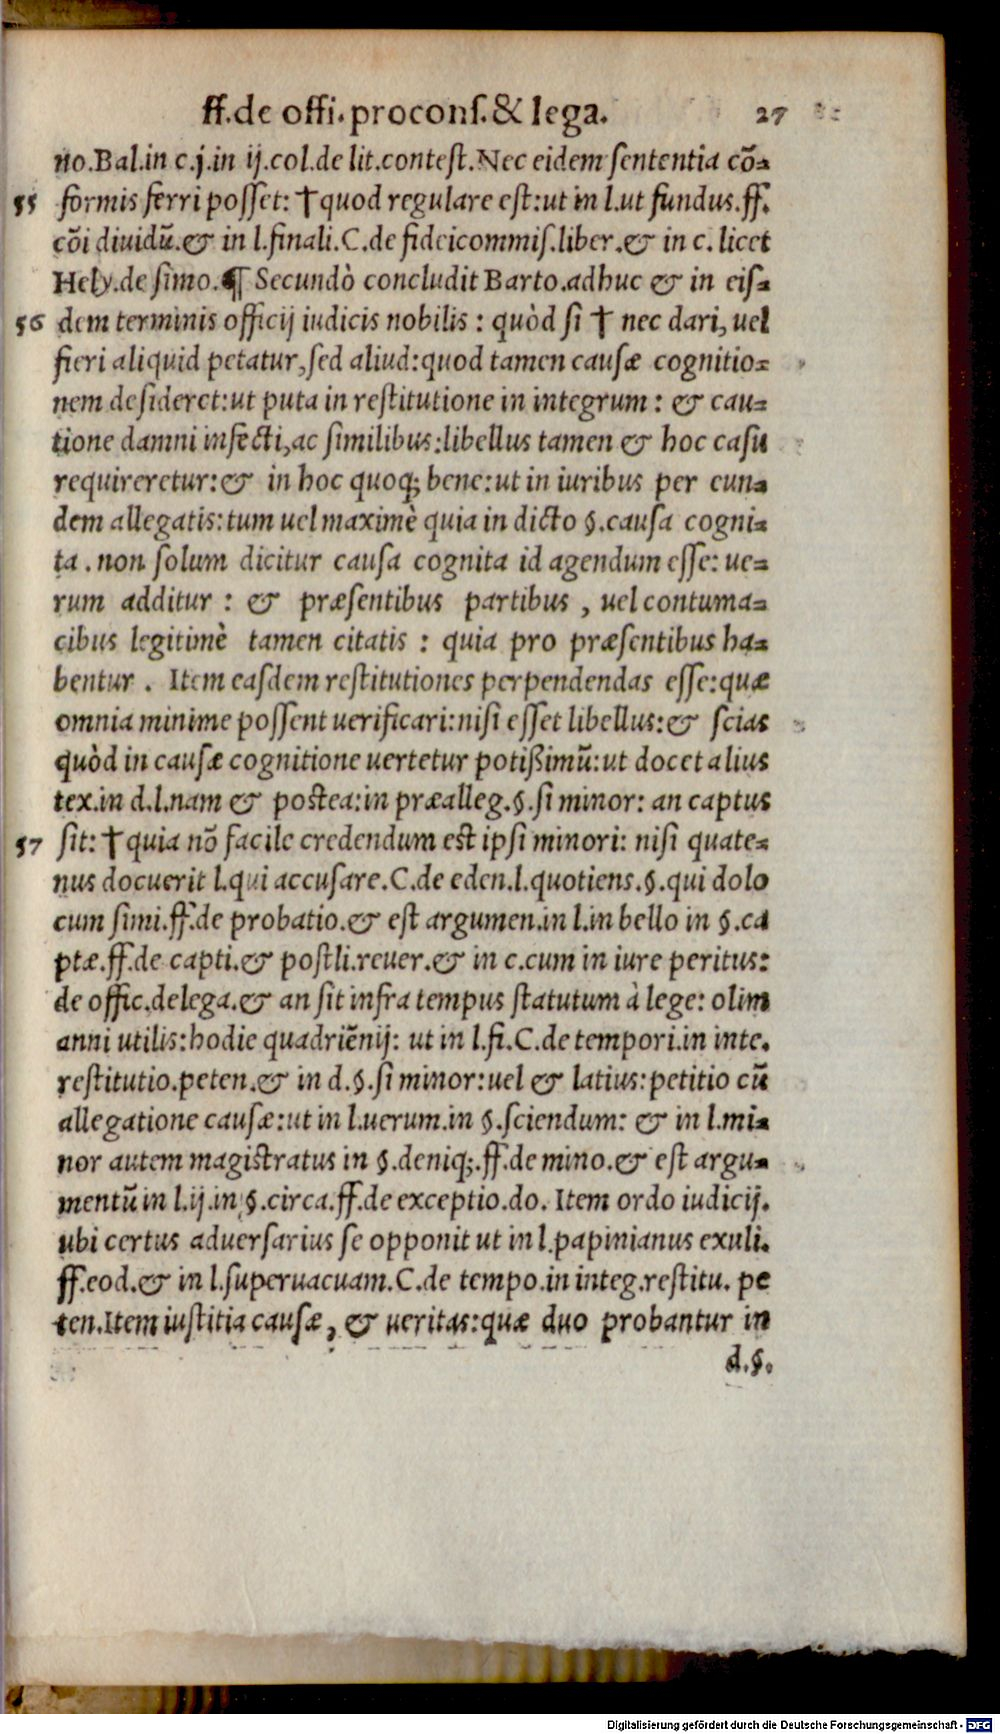 ff.de offi.procons.& lega. 27
no.Bal.in c.j.in ij.col.de lit.contest.Nec eidem sententia cō-
55 formis ferri posset: † quod regulare est:ut in l.ut fundus.ff.
cōi diuidū.& in l.finali.C.de fideicommis.liber.& in c. licet
Hely.de simo.¶ Secundò concludit Barto.adhuc & in eis-
56 dem terminis officij iudicis nobilis : quòd si † nec dari, uel
fieri aliquid petatur,sed aliud:quod tamen causæ cognitio-
nem desideret:ut puta in restitutione in integrum : & cau-
tione damni infecti,ac similibus:libellus tamen & hoc casu
requireretur:& in hoc quoq; bene:ut in iuribus per eun-
dem allegatis:tum uel maximè quia in dicto §.causa cogni-
ta . non solum dicitur causa cognita id agendum esse: ue-
rum additur : & præsentibus partibus , uel contuma-
cibus legitimè tamen citatis : quia pro præsentibus ha-
bentur . Item easdem restitutiones perpendendas esse:quæ
omnia minime possent uerificari:nisi esset libellus:& scias
quòd in causæ cognitione uertetur potißimū:ut docet alius
tex.in d.l.nam & postea:in præalleg.§.si minor: an captus
57 sit: † quia nō facile credendum est ipsi minori: nisi quate-
nus docuerit l.qui accusare.C.de eden.l.quotiens.§.qui dolo
cum simi.ff.de probatio.& est argumen.in l.in bello in §.ca
ptæ.ff.de capti.& postli.reuer.& in c.cum in iure peritus:
de offic.delega.& an sit infra tempus statutum à lege: olim
anni utilis:hodie quadriēnij: ut in l.fi.C.de tempori.in inte.
restitutio.peten.& in d.§.si minor:uel & latius:petitio cū
allegatione causæ:ut in l.uerum.in §.sciendum: & in l.mi-
nor autem magistratus in §.deniq;.ff.de mino.& est argu-
mentū in l.ij.in §.circa.ff.de exceptio.do. Item ordo iudicij.
ubi certus aduersarius se opponit ut in l.papinianus exuli.
ff.eod.& in l.superuacuam.C.de tempo.in integ.restitu. pe
ten.Item iustitia causæ, & ueritas:quæ duo probantur in
d.§.
Digitalisierung gefördert durch die Deutsche Forschungsgemeinschaft - DFG